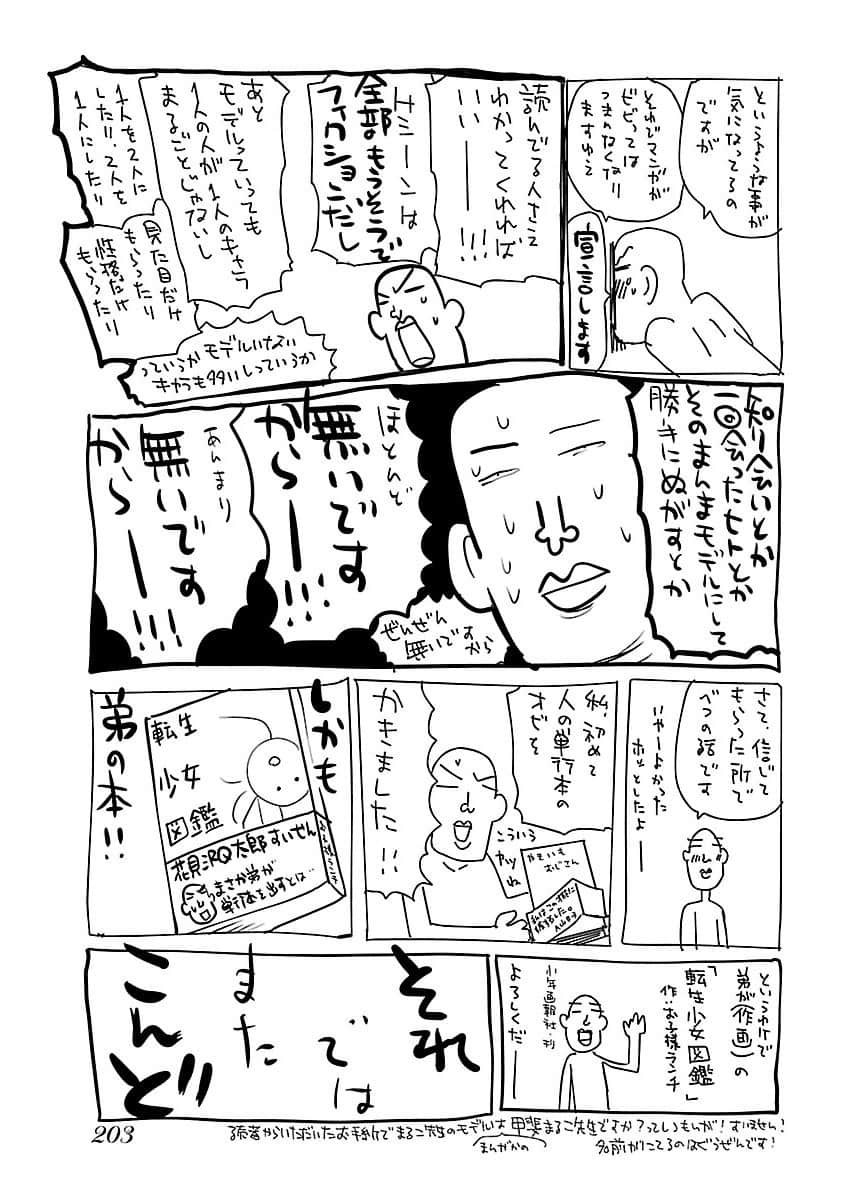 というような事が
気になってるの
ですが
それでマンガが
ビビっては
つまんなくなり
ますゆえ
宣言します
読んでる人さえ
わかってくれれば
いいーー!!!
Hシーンは
全部もうそうで
フィクションだし
あと
モデルっていっても
1人の人が1人のキャラ
まるごとじゃないし
1人を2人に
したり、2人を
1人にしたり
見た目だけ
もらったり
性格だけ
もらったり
っていうかモデルいない
キャラも多いしっていうか
知り合いとか
一回会ったヒトとか
そのまんまモデルにして
勝手にぬがすとか
ほとんど
無いです
から〜ー!!!
あんまり
無いです
から〜ー!!!
ぜんぜん
無いですから
さて、信じて
もらった所で
べつの話です
いやーよかった
ホッとしたよー
私、初めて
人の単行本の
オビを
かきました!!
こういう
ヤツね
やきいも
おじさん
しかも
弟の本!!
転生
少女
図鑑
花見沢Q太郎すいせん
まさか弟が
単行本を出すとは…
というわけで
弟が(作画)の
「転生少女図鑑」
作・お子様ランチ
少年画報社・刊
よろしくだーー
それ
では
また
こんど
読者からいただいたお手紙でまるこ先生のモデルは甲斐まるこ先生ですか?っていう
まんがかの
もんが!すいません!
名前がにてるのはぐうぜんです!
203